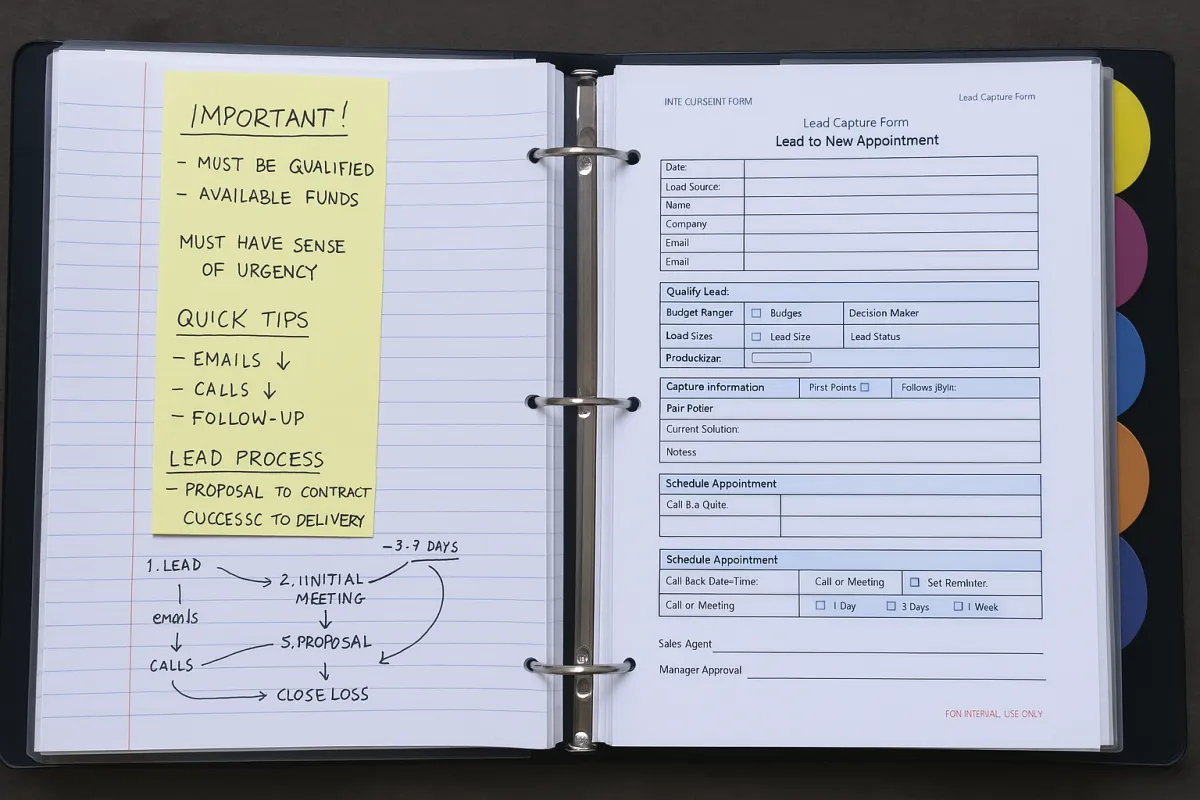 IMPORTANT!
- MUST BE QUALIFIED
- AVAILABLE FUNDS
MUST HAVE SENSE
OF URGENCY
QUICK TIPS
- EMAILS ↓
- CALLS ↓
- FOLLOW-UP
LEAD PROCESS
- PROPOSAL TO CONTRACT
CUCCESSC TO DELIVERY
-3-7 DAYS
1. LEAD
2, IINITIAL
MEETING
emails
5. PROPOSAL
CALLS
CLOSE LOSS
INTE CURSEINT FORM
Lead Capture Form
Lead Capture Form
Lead to New Appointment
Date:
Load Source:
Name
Company
Email
Email
Qualify Lead:
Budget Ranger Budges Decision Maker
Load Sizes Lead Size Lead Status
Produckizar:
Capture information Pirst Points Follows jByln:
Pair Potier
Current Solution:
Notess
Schedule Appointment
Call B.a Quite.
Schedule Appointment
Call Back Date=Time: Call or Meeting Set RemInter.
Call or Meeting 1 Day 3 Days 1 Week
Sales Agent
Manager Approval
FON INTERVAL, USE ONLY